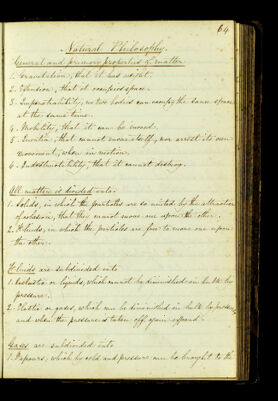 64
Natural Philosophy.
General and primary properties of matter
1. Gravitation, that it has weight.
2. Extension, that it occupies space.
3. Impenetrability, no two bodies can occupy the same space
at the same time.
4. Mobility, that it can be moved.
5. Inertia, that cannot move itself, nor arrest its own
movement, when in motion.
6. Indestructibility, that it cannot destroy.
All matter is divided into.
1. Solids, in which the particles are so united by the attraction
of cohesion, that they cannot move one upon the other.
2. Fluids, in which the particles are free to move one upon
the other.
Fluids are subdivided into
1. Inelastic or liquids, which cannot be diminished in bulk by
pressure.
2. Elastic or gases, which can be diminished in bulk by pressure
and when the pressure is taken off again expand.
Gases are subdivided into
1. Vapours, which by cold and pressure can be brought to the